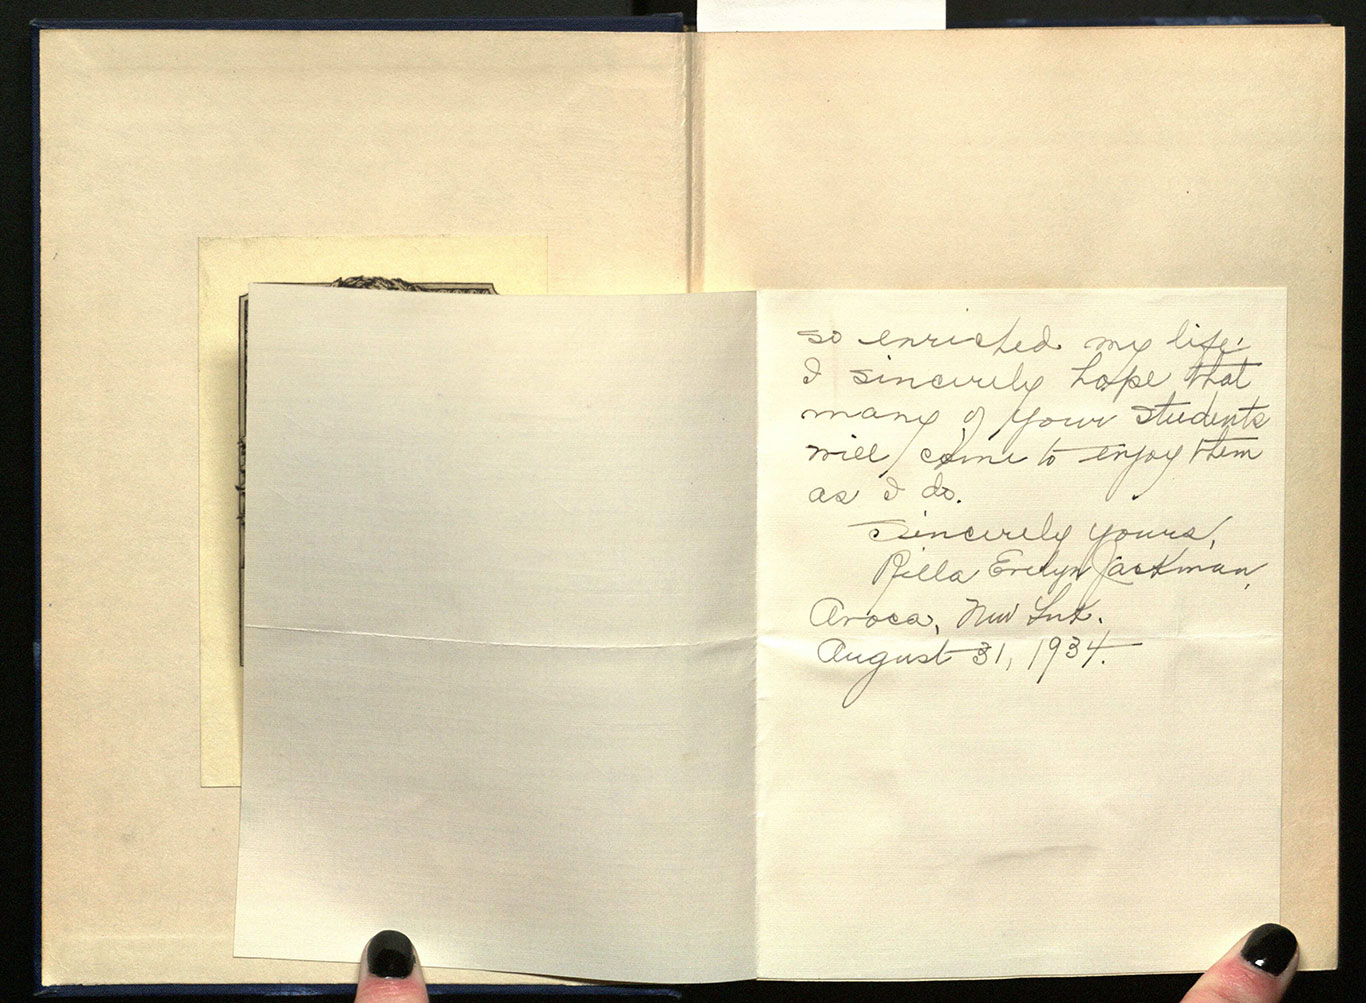 so enriched my life.
I sincerely hope that
many of your students
will come to enjoy them
as I do.
Sincerely yours,
Rilla Evelyn Jackman,
Avoca, New York.
August 31, 1934.